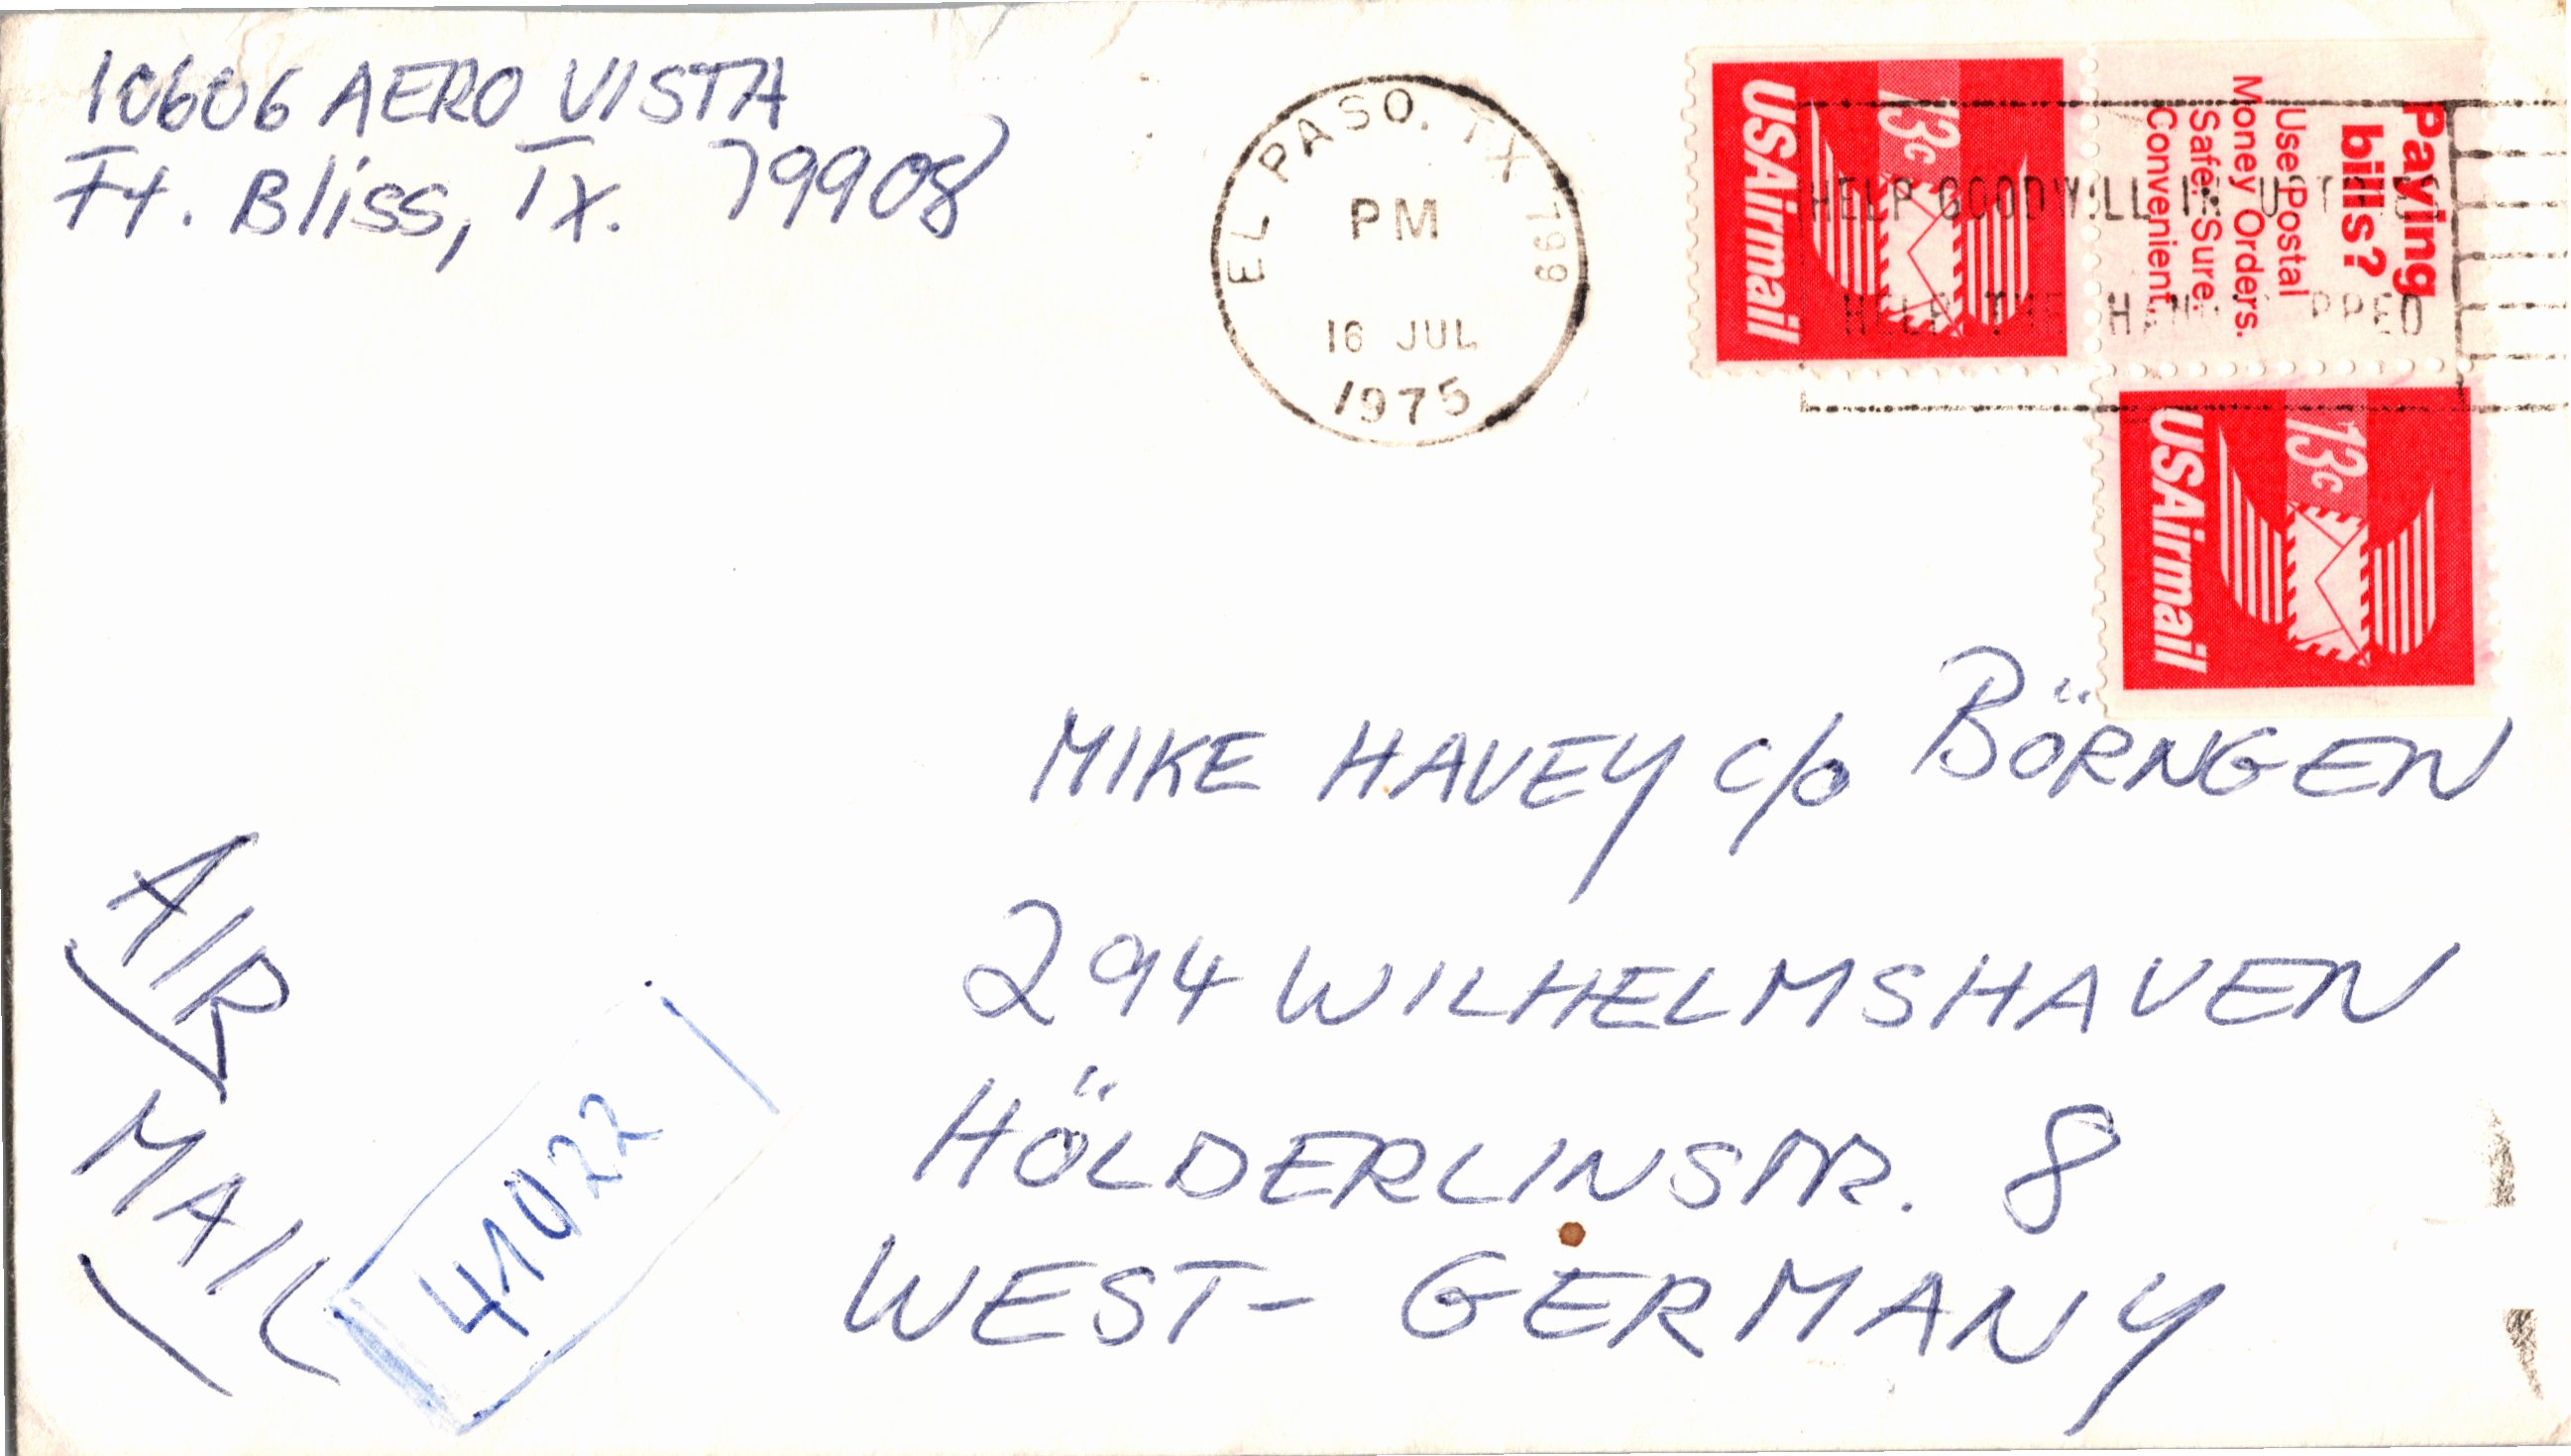 10606 AERO VISTA
Ft. Bliss, Tx. 79908
EL PASO, TX 799
PM
16 JUL
1975
HELP GOODWILL
HELP THE
13c
USAirmail
Paying
bills?
Use Postal
Money Orders.
Safe. Sure.
Convenient.
13c
USAirmail
MIKE HAVEY c/o BÖRNGEN
294 WILHELMSHAVEN
HÖLDERLINSTR. 8
WEST-GERMANY
AIR
MAIL
41022